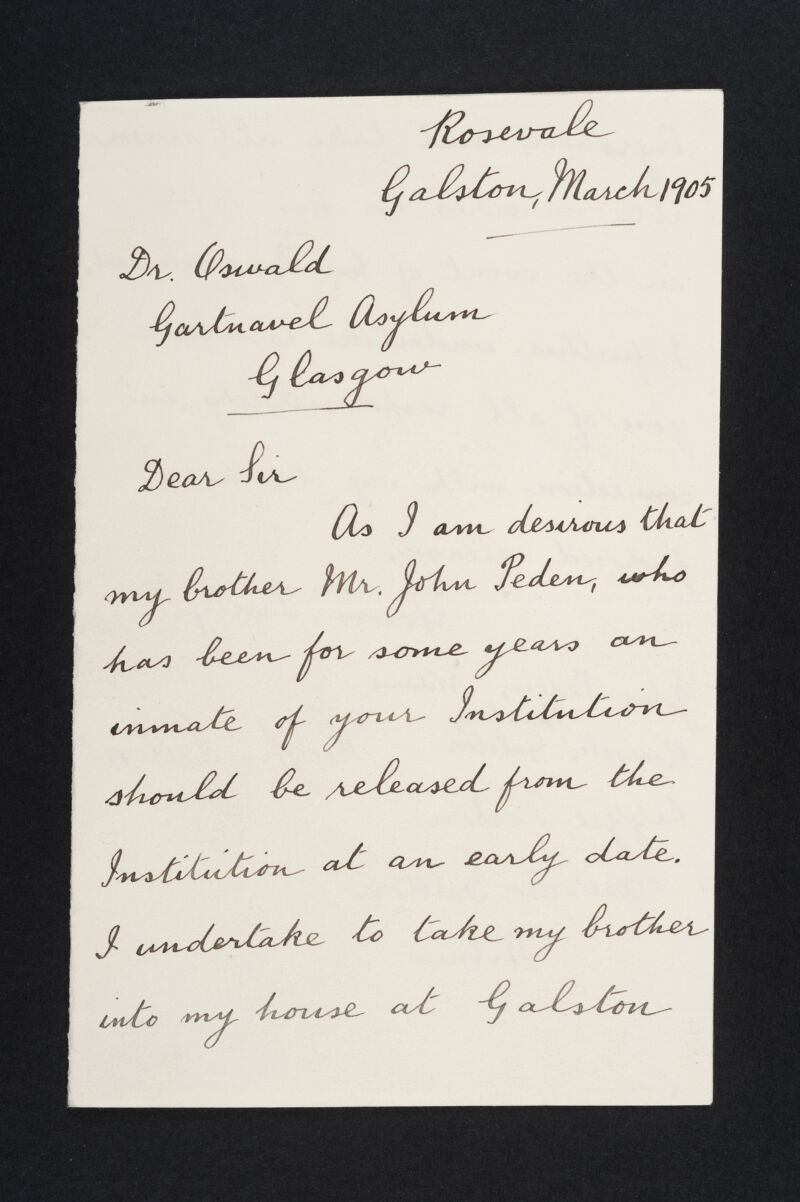 Rosevale
Galston, March 1905
Dr. Oswald
Gartnavel Asylum
Glasgow
Dear Sir
As I am desirous that
my brother Mr. John Peden, who
has been for some years an
inmate of your Institution
should be released from the
Institution at an early date.
I undertake to take my brother
into my house at Galston